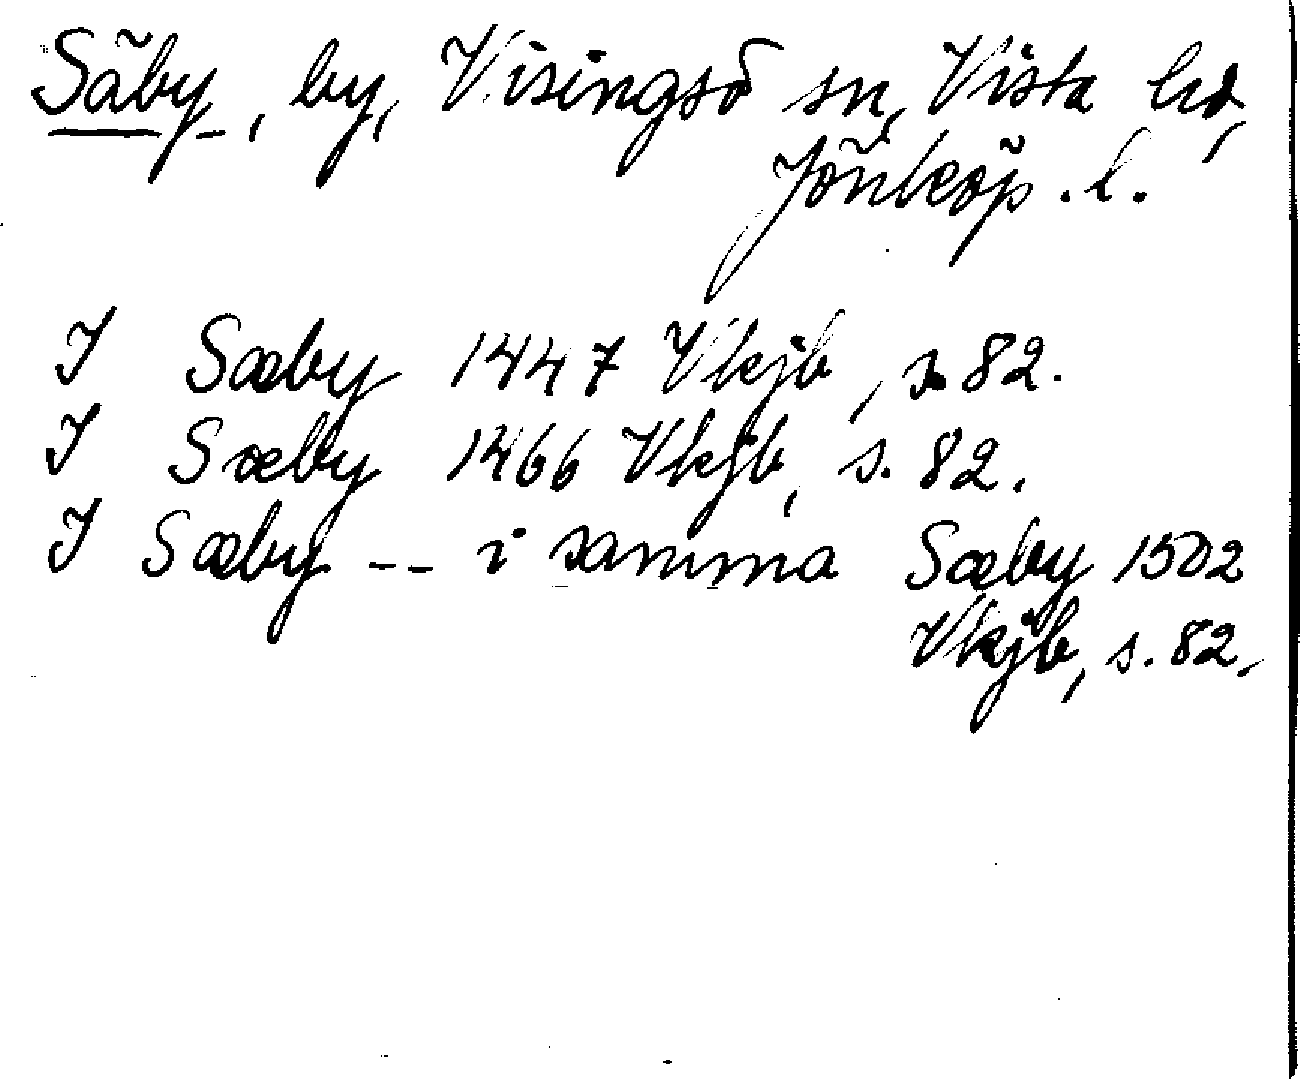 Säby, by, Visingsö sn, Vista hd,
Jönköp. l.
I Sæby 1447 Vkjb, s. 82.
I Sæby 1466 Vkjb, s. 82.
I Sæby -- i samma Sæby 1502
Vkjb, s. 82.